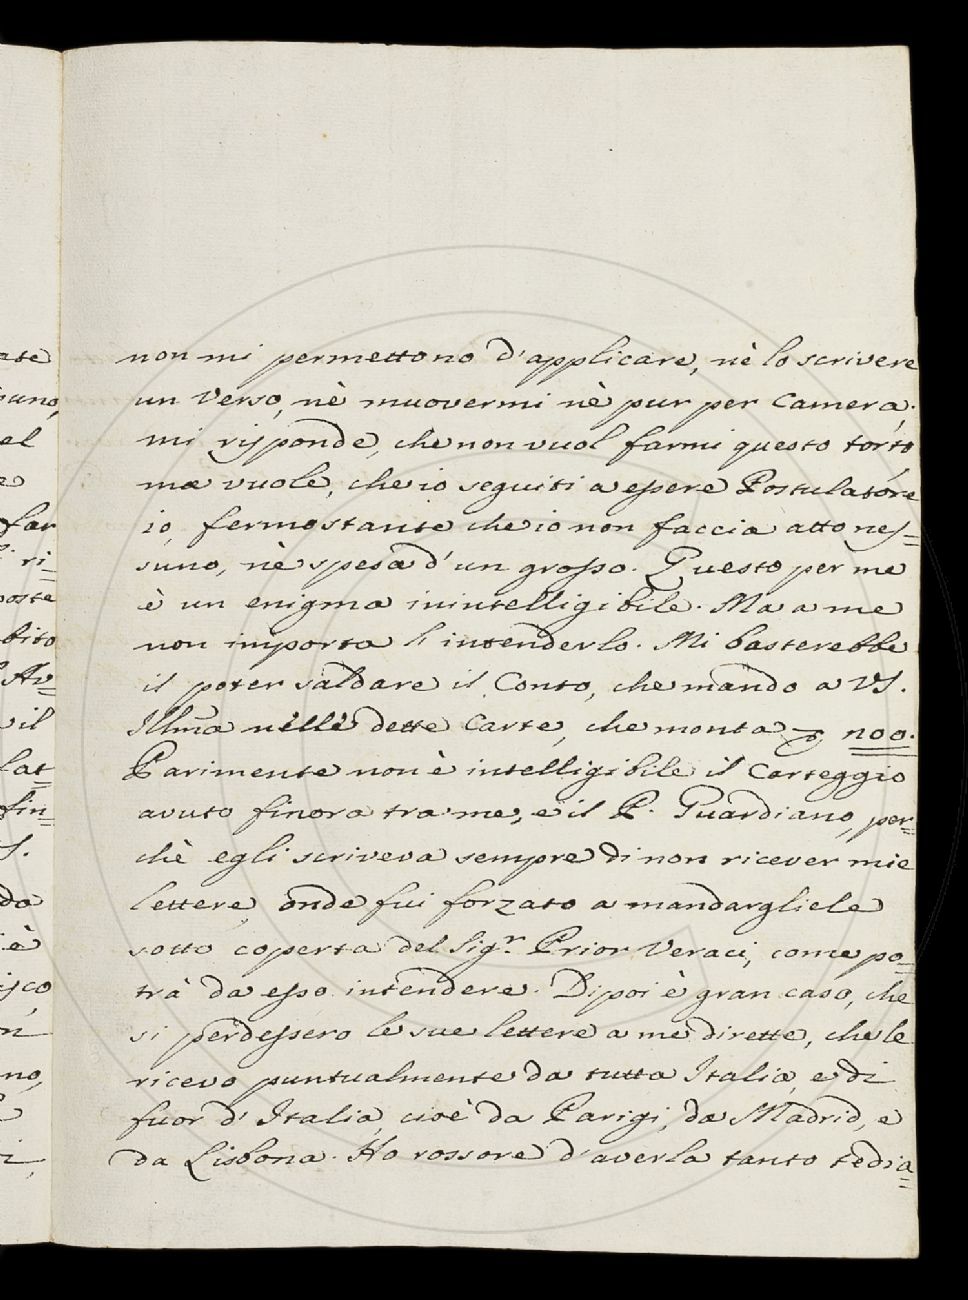 non mi permettono d'applicare, nè lo scrivere
un Verso, nè muovermi nè pur per Camera.
mi risponde, che non vuol farmi questo torto
ma vuole, che io seguiti a essere Postulatore
io, fermostante che io non faccia atto nes=
suno, nè spesa d'un grosso. Questo per me
è un enigma inintelligibile. Ma a me
non importa l'intenderlo. Mi basterebbe
il poter saldare il Conto, che mando a VS.
Illma nelle dette Carte, che monta
Parimente non è intelligibile il Carteggio
avuto finora tra me, e il P. Guardiano, per=
chè egli scriveva sempre di non ricever mie
lettere, onde fui forzato a mandargliele
sotto coperta del Sigr. Prior Veraci, come po=
trà da esso intendere. Dipoi è gran caso, che
si perdessero le sue lettere a me dirette, che le
ricevo puntualmente da tutta Italia, e di
fuor d'Italia, cioè da Parigi, da Madrid, e
da Lisbona. Ho rossore d'averla tanto tedia=